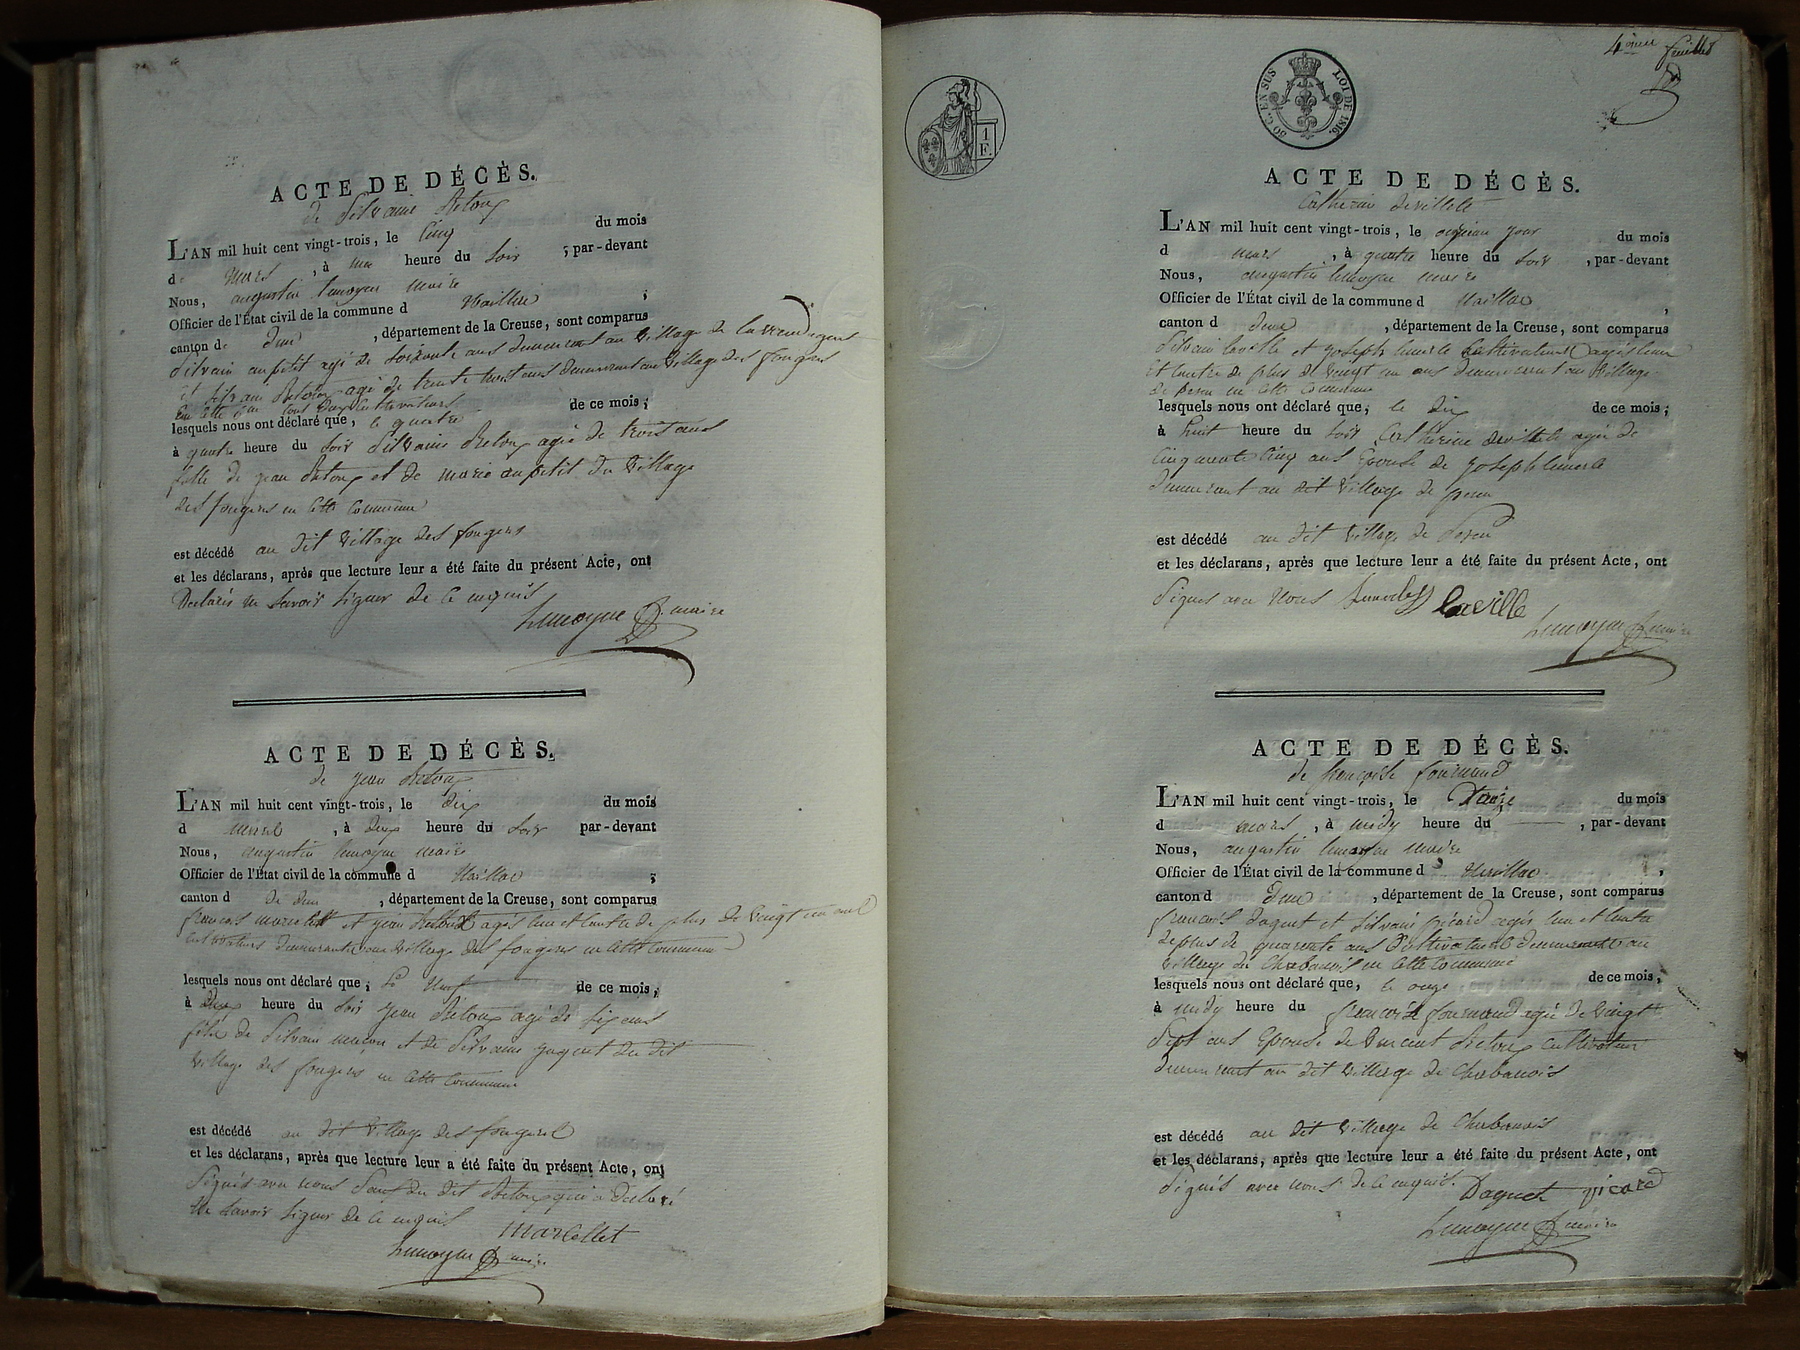 ACTE DE DÉCÈS.
de Silvaine Betoux
L'AN mil huit cent vingt-trois, le cinq du mois
de mars, à une heure du soir; par-devant
Nous, augustin lemoyne maire
Officier de l'État civil de la commune d naillac;
canton de dun, département de la Creuse, sont comparus
Silvain aupetit agé de soixante ans demeurant au village de
et silvain Betoux agé de trente huit ans demeurant au village des fougeres
en cette cne tous deux cultivateurs
lesquels nous ont déclaré que, le quatre de ce mois;
à quatre heure du soir Silvaine Betoux agée de trois ans
fille de jean Betoux et de marie aupetit du village
des fougeres en cette commune
est décédé au dit village des fougeres
et les déclarans, après que lecture leur a été faite du présent Acte, ont
Déclarés ne savoir signer de ce enquis
Lemoyne maire
ACTE DE DÉCÈS.
de jean Betoux
L'AN mil huit cent vingt-trois, le dix du mois
d mars, à deux heure du soir par-devant
Nous, augustin lemoyne maire
Officier de l'État civil de la commune d Naillac;
canton d de dun, département de la Creuse, sont comparus
francois marcellet et jean Betoux agés lun et lautre de plus de vingt un ans
cultivateurs demeurants au village des fougeres en cette commune
lesquels nous ont déclaré que; le neuf de ce mois;
à deux heure du soir jean Betoux agé de six ans
fils de Silvain et de Silvaine du dit
village des fougeres en cette commune
est décédé au dit village des fougeres
et les déclarans, après que lecture leur a été faite du présent Acte, ont
Signés avec nous sauf du dit Betoux qui a déclaré
ne savoir signer de ce enquis
Marcellet
Lemoyne maire
4ème feuille
1 F.
50 C. EN SUS LOI DE 1816.
ACTE DE DÉCÈS.
Catherine devillete
L'AN mil huit cent vingt-trois, le onzieme jour du mois
d mars, à quatre heure du soir, par-devant
Nous, augustin lemoyne maire
Officier de l'État civil de la commune d Naillac,
canton d dun, département de la Creuse, sont comparus
Silvain laville et joseph cultivateurs agés lun
et lautre de plus de vingt un ans demeurant au village
de peru en cette commune
lesquels nous ont déclaré que, le dix de ce mois;
à huit heure du soir Catherine devillete agée de
cinquante cinq ans épouse de joseph
demeurant au dit village de peru
est décédé au dit village de Peru
et les déclarans, après que lecture leur a été faite du présent Acte, ont
Signés avec nous laville
Lemoyne maire
ACTE DE DÉCÈS.
de francoise fournaud
L'AN mil huit cent vingt-trois, le du mois
d mars, à midy heure du, par-devant
Nous, augustin lemoyne maire
Officier de l'État civil de la commune d Naillac,
canton d dun, département de la Creuse, sont comparus
francois daguet et silvain picard agés lun et lautre
de plus de quarente ans cultivateurs demeurant au
village de Chabanois en cette commune
lesquels nous ont déclaré que, le onze de ce mois;
à midy heure du francoise fournaud agée de vingt
sept ans épouse de vincent Betoux cultivateur
demeurant au dit village de Chabanois
est décédé au dit village de Chabanois
et les déclarans, après que lecture leur a été faite du présent Acte, ont
Signés avec nous de ce enquis. Daguet picard
Lemoyne maire